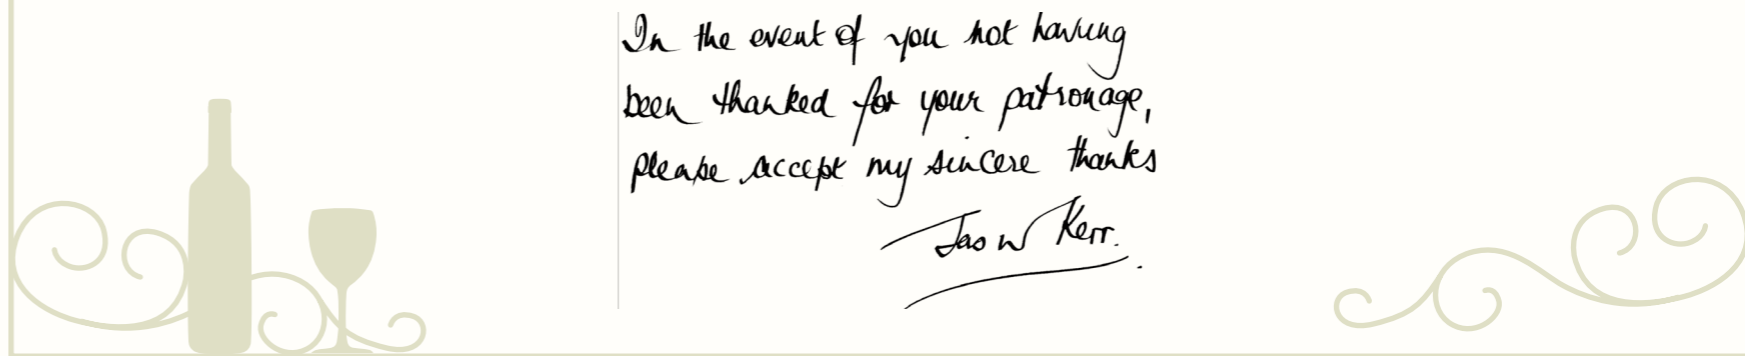 In the event of you not having
been thanked for your patronage,
please accept my sincere thanks
Jason Kerr.